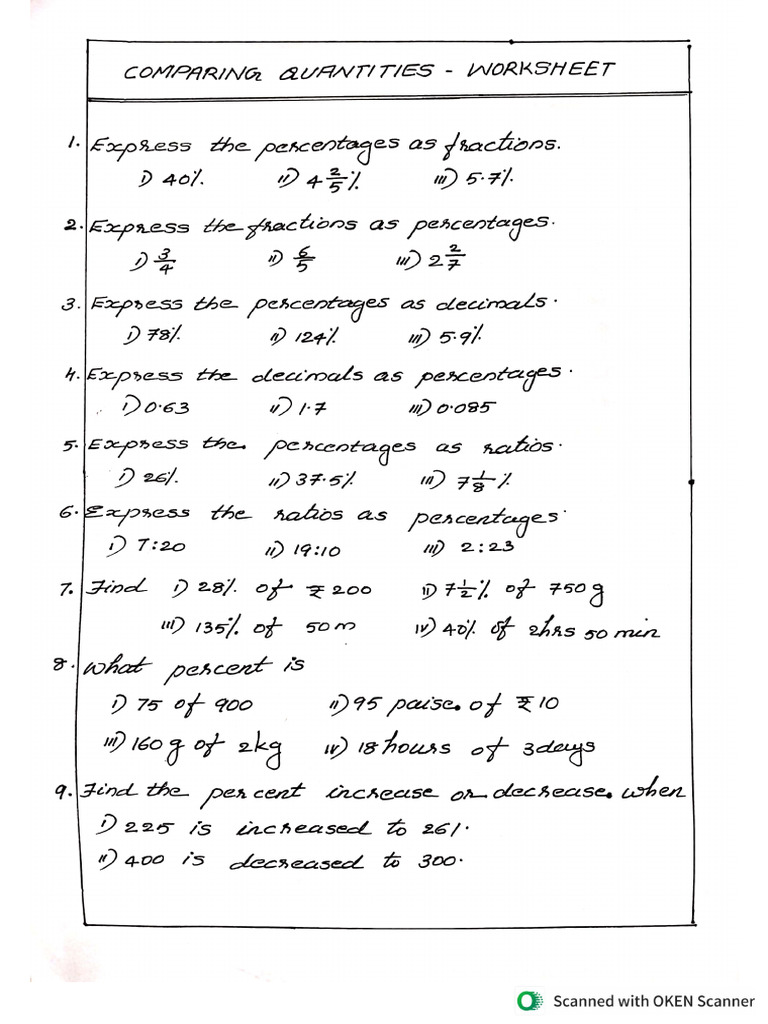 COMPARING QUANTITIES - WORKSHEET
1. Express the percentages as fractions.
i) 40%. ii) 4 2/5 % iii) 5.7%.
2. Express the fractions as percentages.
i) 3/4 ii) 6/5 iii) 2 2/7
3. Express the percentages as decimals.
i) 78%. ii) 124% iii) 5.9%.
4. Express the decimals as percentages.
i) 0.63 ii) 1.7 iii) 0.085
5. Express the percentages as ratios.
i) 26%. ii) 37.5% iii) 7 1/8 %
6. Express the ratios as percentages.
i) 7:20 ii) 19:10 iii) 2:23
7. Find i) 28% of ₹ 200 ii) 7 1/2 % of 750 g
iii) 135% of 50 m iv) 40% of 2hrs 50 min
8. What percent is
i) 75 of 900 ii) 95 paise of ₹ 10
iii) 160 g of 2kg iv) 18 hours of 3 days
9. Find the per cent increase or decrease when
i) 225 is increased to 261.
ii) 400 is decreased to 300.
Scanned with OKEN Scanner